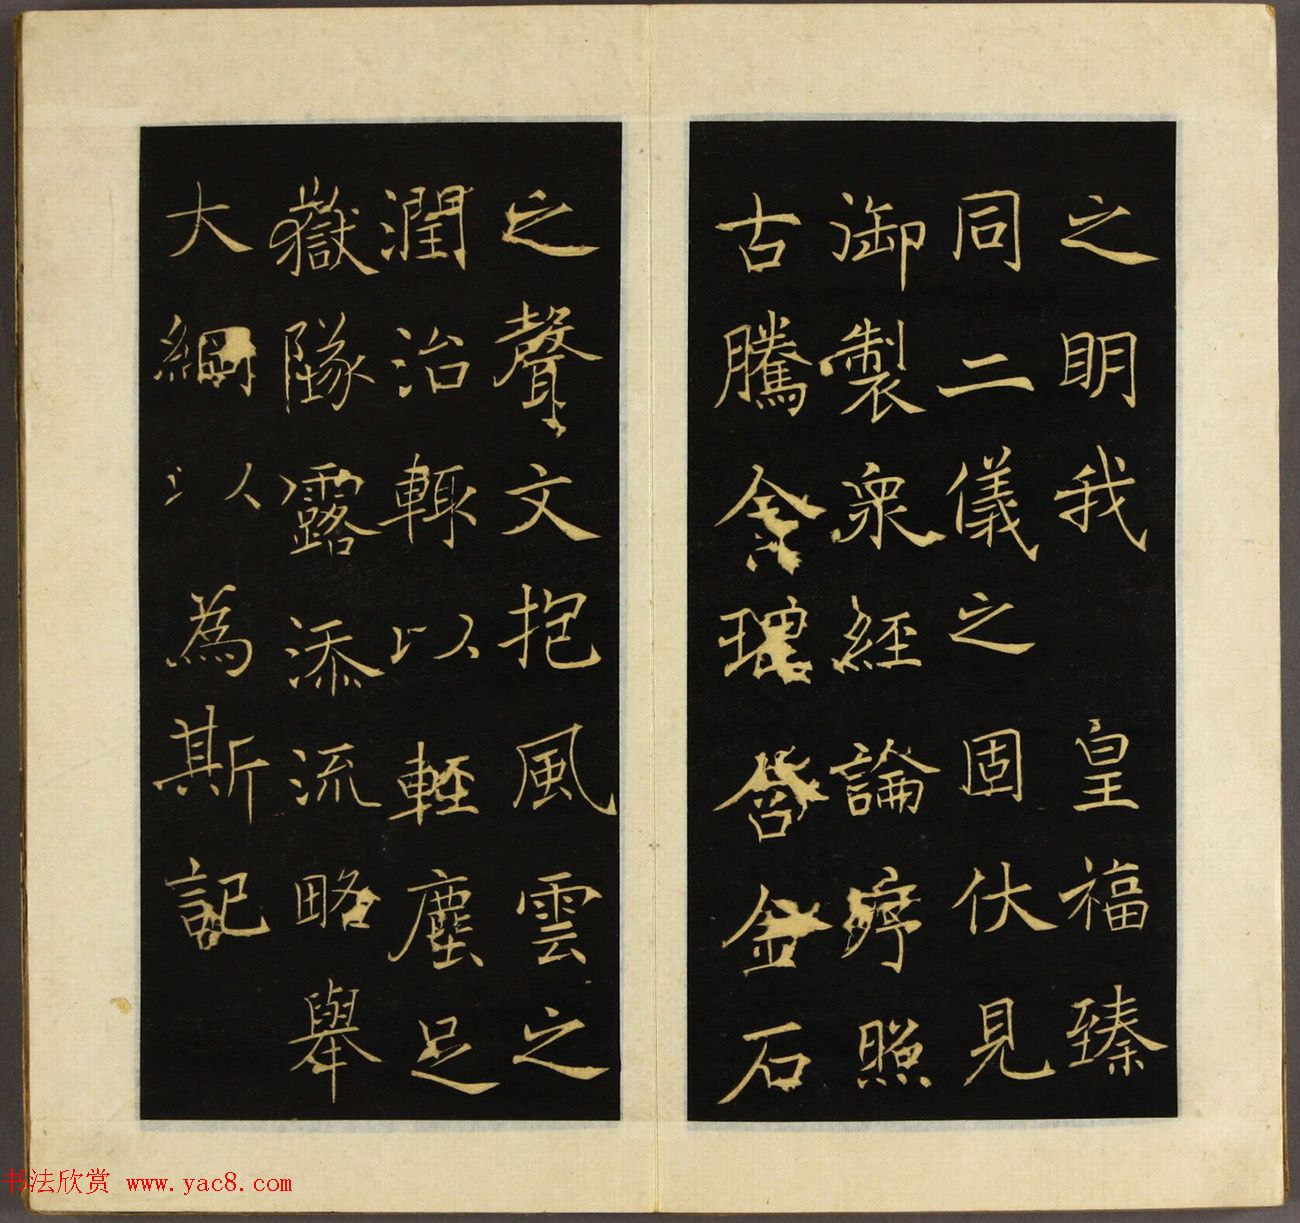 之明我皇福臻
同二儀之固伏見
御製衆經論序照
古騰今理含金石
之聲文抱風雲之
潤治輒以輕塵足
嶽墜露添流略舉
大綱以為斯記
书法欣赏 www.yac8.com